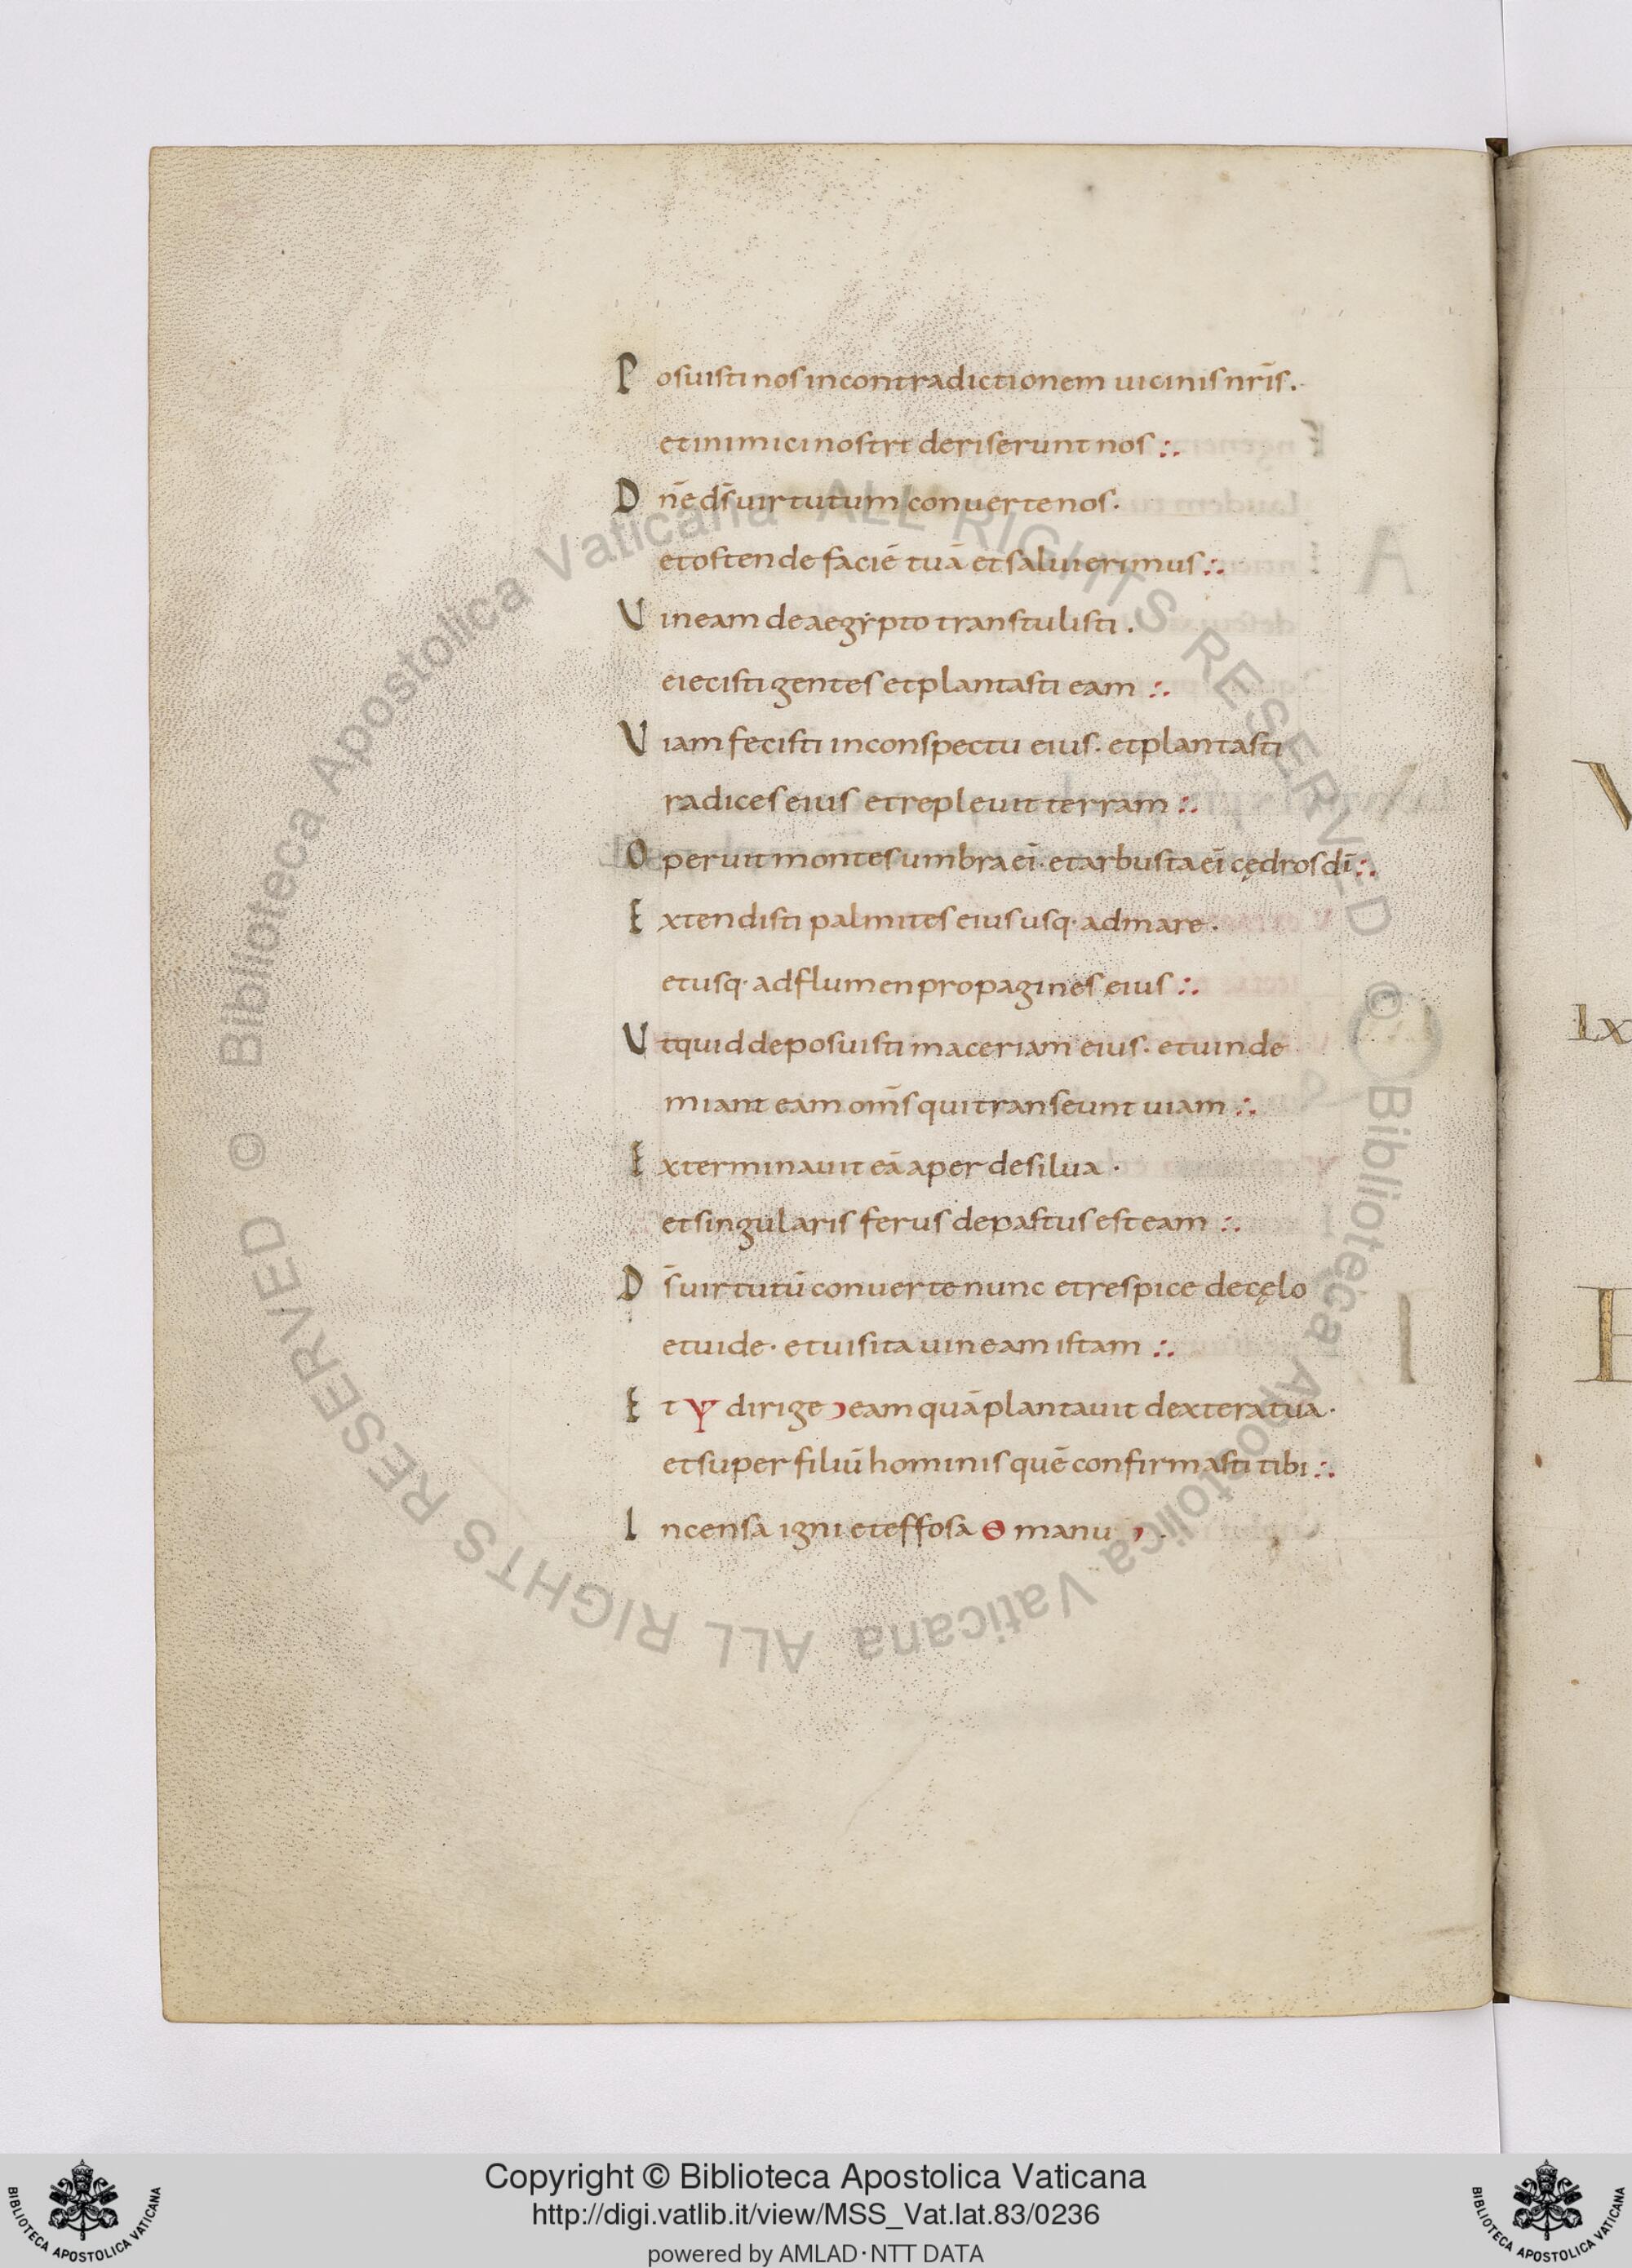 Posuisti nos in contradictionem uicinis nr̄is.
et inimici nostri deriserunt nos ∴
Dn̄e ds̄ uirtutum conuerte nos.
et ostende faciē tuā et salui erimus ∴
Vineam de aegẏpto transtulisti.
eiecisti gentes et plantasti eam ∴
Viam fecisti in conspectu eius. et plantasti
radices eius et repleuit terram ∴
Operuit montes umbra ei. et arbusta ei cędros dī ∴
Extendisti palmites eius usq· ad mare.
et usq· ad flumen propagines eius ∴
Vt quid deposuisti maceriam eius. et uinde
miant eam om̄s qui transeunt uiam ∴
Exterminauit eā aper de silua.
et singularis ferus depastus est eam ∴
Ds̄ uirtutū conuerte nunc et respice de cęlo
et uide. et uisita uineam istam ∴
Et Ƴ dirige ↄ eam quā plantauit dextera tua.
et super filiū hominis quē confirmasti tibi ∴
Incensa igni et effosa ϴ manu ↄ.
V
LX
Copyright © Biblioteca Apostolica Vaticana
http://digi.vatlib.it/view/MSS_Vat.lat.83/0236
powered by AMLAD·NTT DATA
BIBLIOTECA APOSTOLICA VATICANA
BIBLIOTECA APOSTOLICA VATICANA
© Biblioteca Apostolica Vaticana ALL RIGHTS RESERVED
© Biblioteca Apostolica Vaticana ALL RIGHTS RESERVED